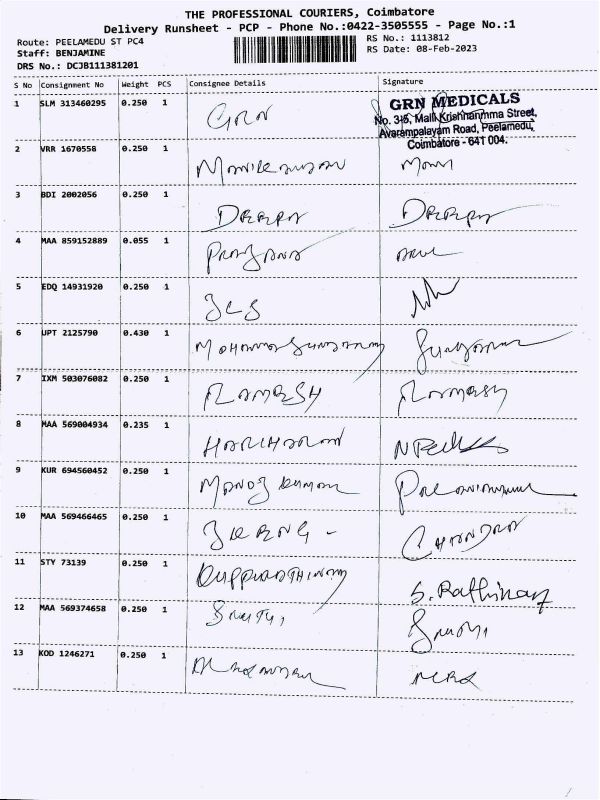 THE PROFESSIONAL COURIERS, Coimbatore
Delivery Runsheet - PCP - Phone No.:0422-3505555 - Page No.:1
Route: PEELAMEDU ST PC4
RS No.: 1113812
Staff: BENJAMINE
RS Date: 08-Feb-2023
DRS No.: DCJB111381201
S No Consignment No Weight PCS Consignee Details Signature
1 SLM 313460295 0.250 1 GRN
GRN MEDICALS
No. 3-5, Malli Krishnamma Street,
Avarampalayam Road, Peelamedu,
Coimbatore - 641 004.
2 VRR 1670558 0.250 1 Manikandan Mani
3 BDI 2002056 0.250 1 Deepa Deepa
4 MAA 859152889 0.055 1
5 EDQ 14931920 0.250 1
6 UPT 2125790 0.430 1
7 IXM 503076082 0.250 1 RAMESH Ramesh
8 MAA 569004934 0.235 1 HARIHARAN
9 KUR 694560452 0.250 1 Manoj Kumar
10 MAA 569466465 0.250 1
11 STY 73139 0.250 1 S. Rathinam
12 MAA 569374658 0.250 1 Sruthi Sruthi
13 KOD 1246271 0.250 1